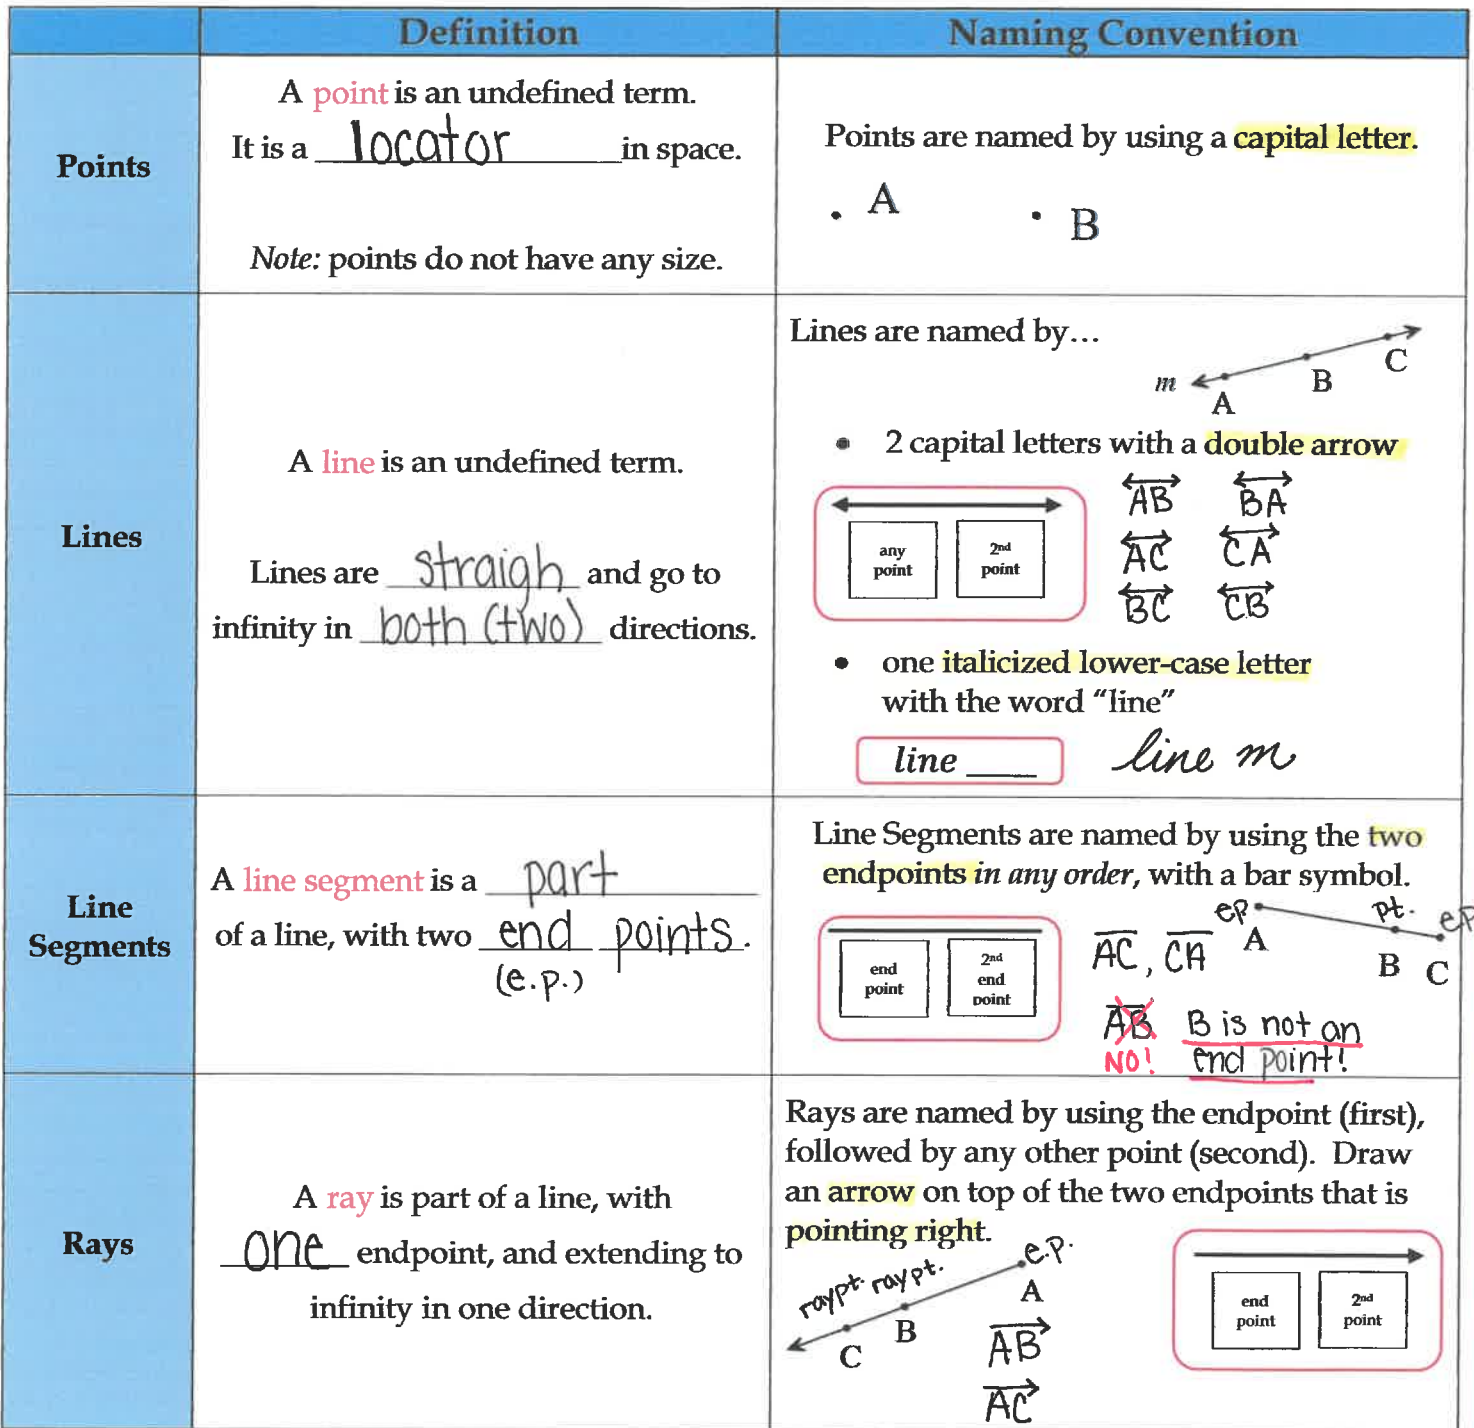 Definition
Naming Convention
Points
A point is an undefined term.
It is a locator in space.
Note: points do not have any size.
Points are named by using a capital letter.
A
B
Lines
A line is an undefined term.
Lines are straigh and go to
infinity in both (two) directions.
Lines are named by...
m
A
B
C
• 2 capital letters with a double arrow
any
point
2nd
point
AB BA
AC CA
BC CB
• one italicized lower-case letter
with the word "line"
line ____
line m
Line
Segments
A line segment is a part
of a line, with two end points.
(e.p.)
Line Segments are named by using the two
endpoints in any order, with a bar symbol.
end
point
2nd
end
point
ep
pt.
ep
A
B
C
AC, CA
AB
NO!
B is not an
end point!
Rays
A ray is part of a line, with
one endpoint, and extending to
infinity in one direction.
Rays are named by using the endpoint (first),
followed by any other point (second). Draw
an arrow on top of the two endpoints that is
pointing right.
ray pt. ray pt.
e.p.
A
B
C
AB
AC
end
point
2nd
point